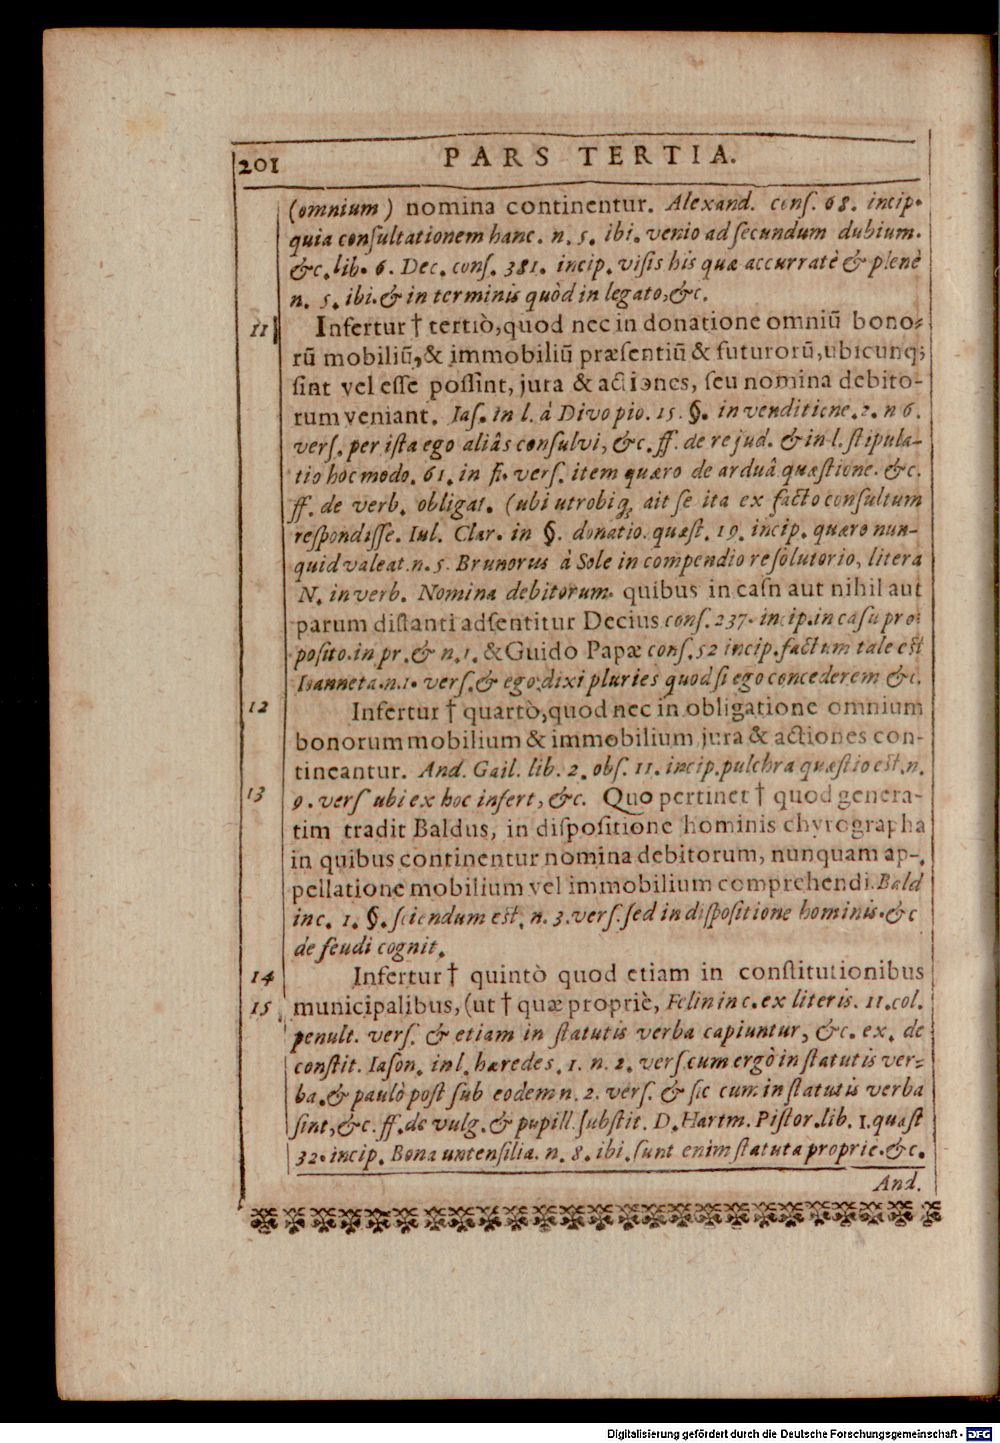 201
PARS TERTIA.
(omnium) nomina continentur. Alexand. conſ. 68. incip.
quia conſultationem hanc. n. 5. ibi. venio ad ſecundum dubium.
&c. lib. 6. Dec. conſ. 381. incip. viſis his quæ accurratè & plenè
n. 5. ibi. & in terminis quòd in legato, &c.
11 Infertur † tertiò, quod nec in donatione omniū bono-
rū mobiliū, & immobiliū præſentiū & futurorū, ubicunq;
ſint vel eſſe poſſint, jura & actiones, ſeu nomina debito-
rum veniant. Iaſ. in l. à Divo pio. 15. §. in venditione. 2. n 6.
verſ. per iſta ego aliâs conſulvi, &c. ff. de re jud. & in l. ſtipula-
tio hoc modo. 61. in fi. verſ. item quæro de arduâ quæſtione. &c.
ff. de verb. obligat. (ubi utrobiq; ait ſe ita ex facto conſultum
reſpondiſſe. Iul. Clar. in §. donatio. quæſt. 19. incip. quæro nun-
quid valeat. n. 5. Brunorus à Sole in compendio reſolutorio, litera
N. in verb. Nomina debitorum. quibus in caſn aut nihil aut
parum diſtanti adſentitur Decius conſ. 237. incip. in caſu pro-
poſito. in pr. & n. 1. & Guido Papæ conſ. 52 incip. factum tale est
Ioanneta. n. 1. verſ. & ego dixi pluries quod ſi ego concederem &c.
12 Infertur † quartò, quod nec in obligatione omnium
bonorum mobilium & immobilium jura & actiones con-
tineantur. And. Gail. lib. 2. obſ. 11. incip. pulchra quæſtio est. n.
13 9. verſ ubi ex hoc infert, &c. Quo pertinet † quod genera-
tim tradit Baldus, in diſpoſitione hominis chyrographa
in quibus continentur nomina debitorum, nunquam ap-
pellatione mobilium vel immobilium comprehendi. Bald
in c. 1. §. ſciendum est. n. 3. verſ. ſed in diſpoſitione hominis. &c
de feudi cognit.
14 Infertur † quintò quod etiam in conſtitutionibus
15 municipalibus, (ut † quæ propriè, Felin in c. ex literis. 11. col.
penult. verſ. & etiam in ſtatutis verba capiuntur, &c. ex. de
conſtit. Iaſon. in l. hæredes. 1. n. 2. verſ. cum ergò in ſtatutis ver-
ba. & paulò poſt ſub eodem n. 2. verſ. & ſic cum in ſtatutis verba
ſint, &c. ff. de vulg. & pupill. ſubſtit. D. Hartm. Piſtor. lib. 1. quæſt
32. incip. Bona untenſilia. n. 8. ibi. ſunt enim ſtatuta propriè. &c.
And.
Digitalisierung gefördert durch die Deutsche Forschungsgemeinschaft - DFG